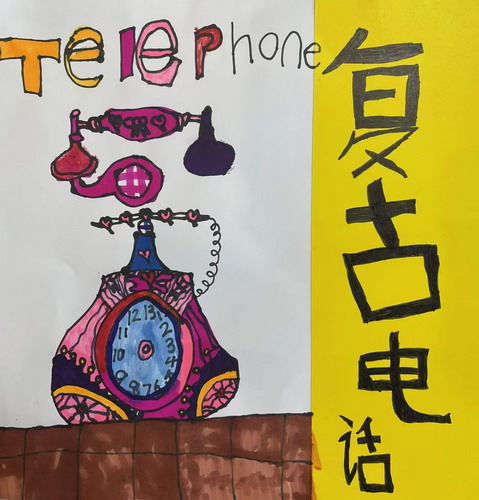 TelePhone
复古电话
12 13
11
2
3
10
4
9 8 7 6